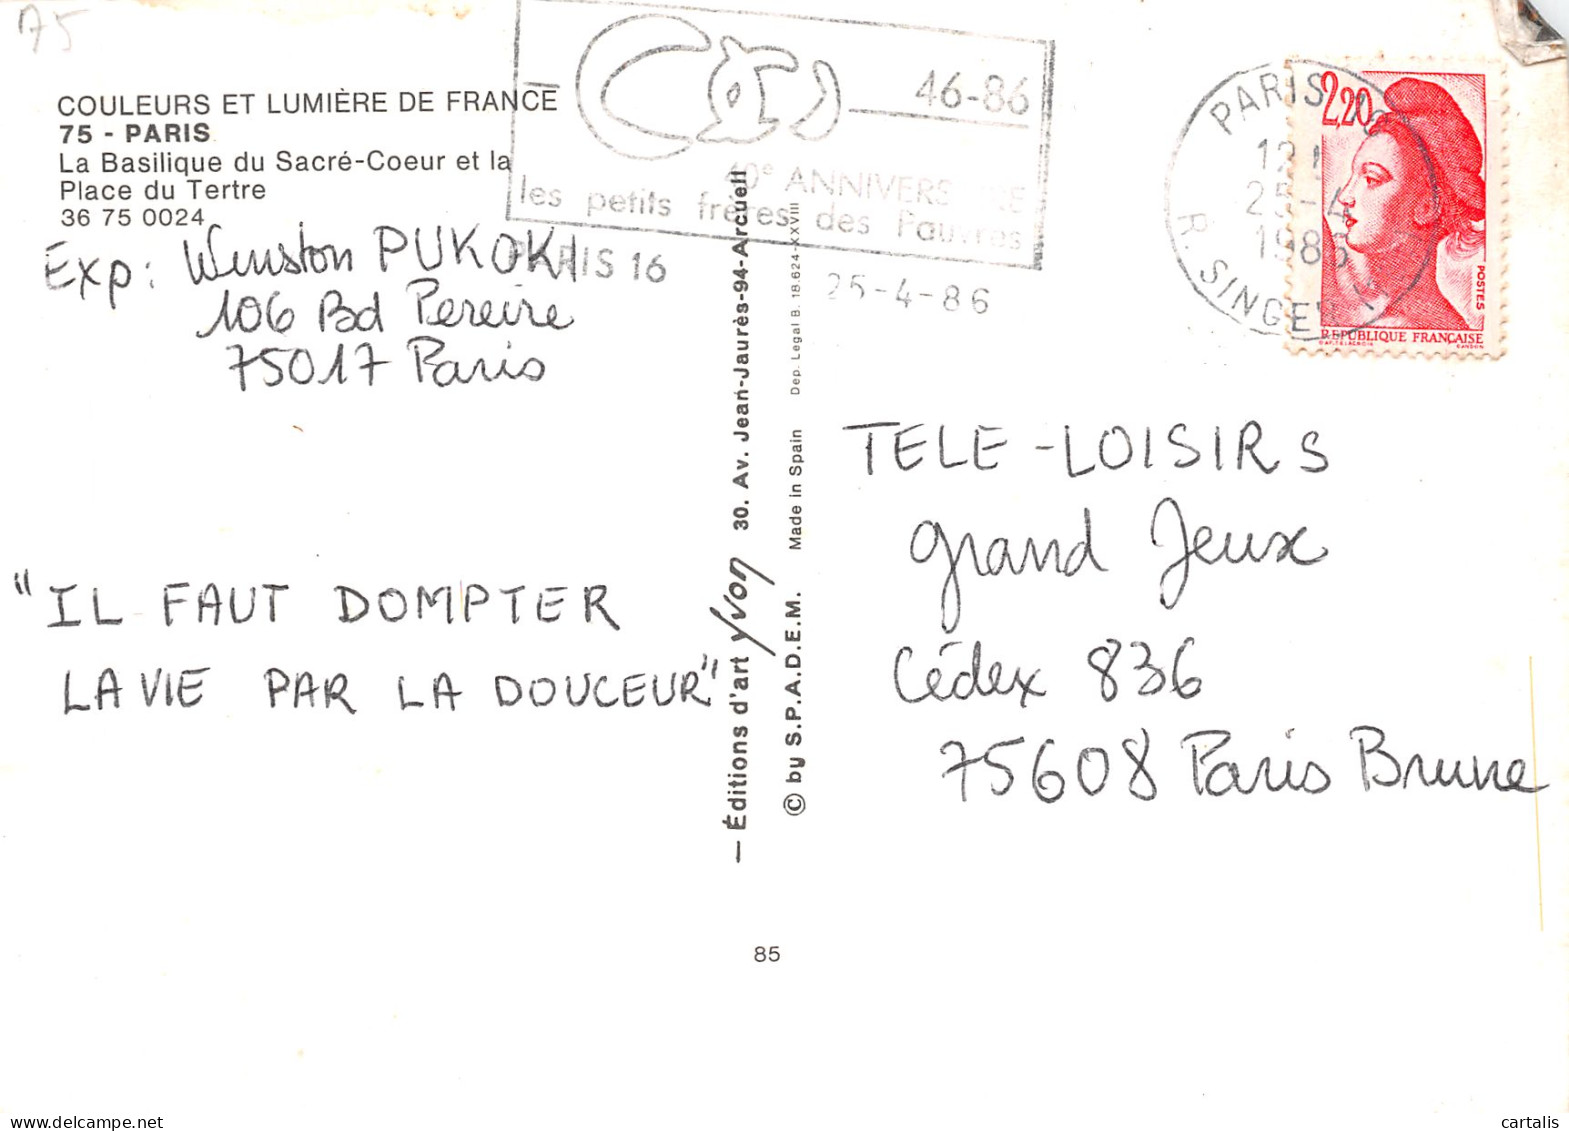 75
COULEURS ET LUMIÈRE DE FRANCE
75 - PARIS
La Basilique du Sacré-Coeur et la
Place du Tertre
36 75 0024
Exp: Winston PUKOKI
106 Bd Pereire
75017 Paris
"IL FAUT DOMPTER
LA VIE PAR LA DOUCEUR"
46-86
40e ANNIVERSAIRE
les petits frères des Pauvres
PARIS 16
25-4-86
— Éditions d'art Yvon 30. Av. Jean-Jaurès-94-Arcueil
© by S.P.A.D.E.M. Made in Spain Dep. Legal B. 18.624-XXVIII
85
PARIS 16
25-4
1986
R. SINGER
2,20
POSTES
REPUBLIQUE FRANÇAISE
TELE-LOISIRS
grand Jeux
Cédex 836
75608 Paris Brune
cartalis